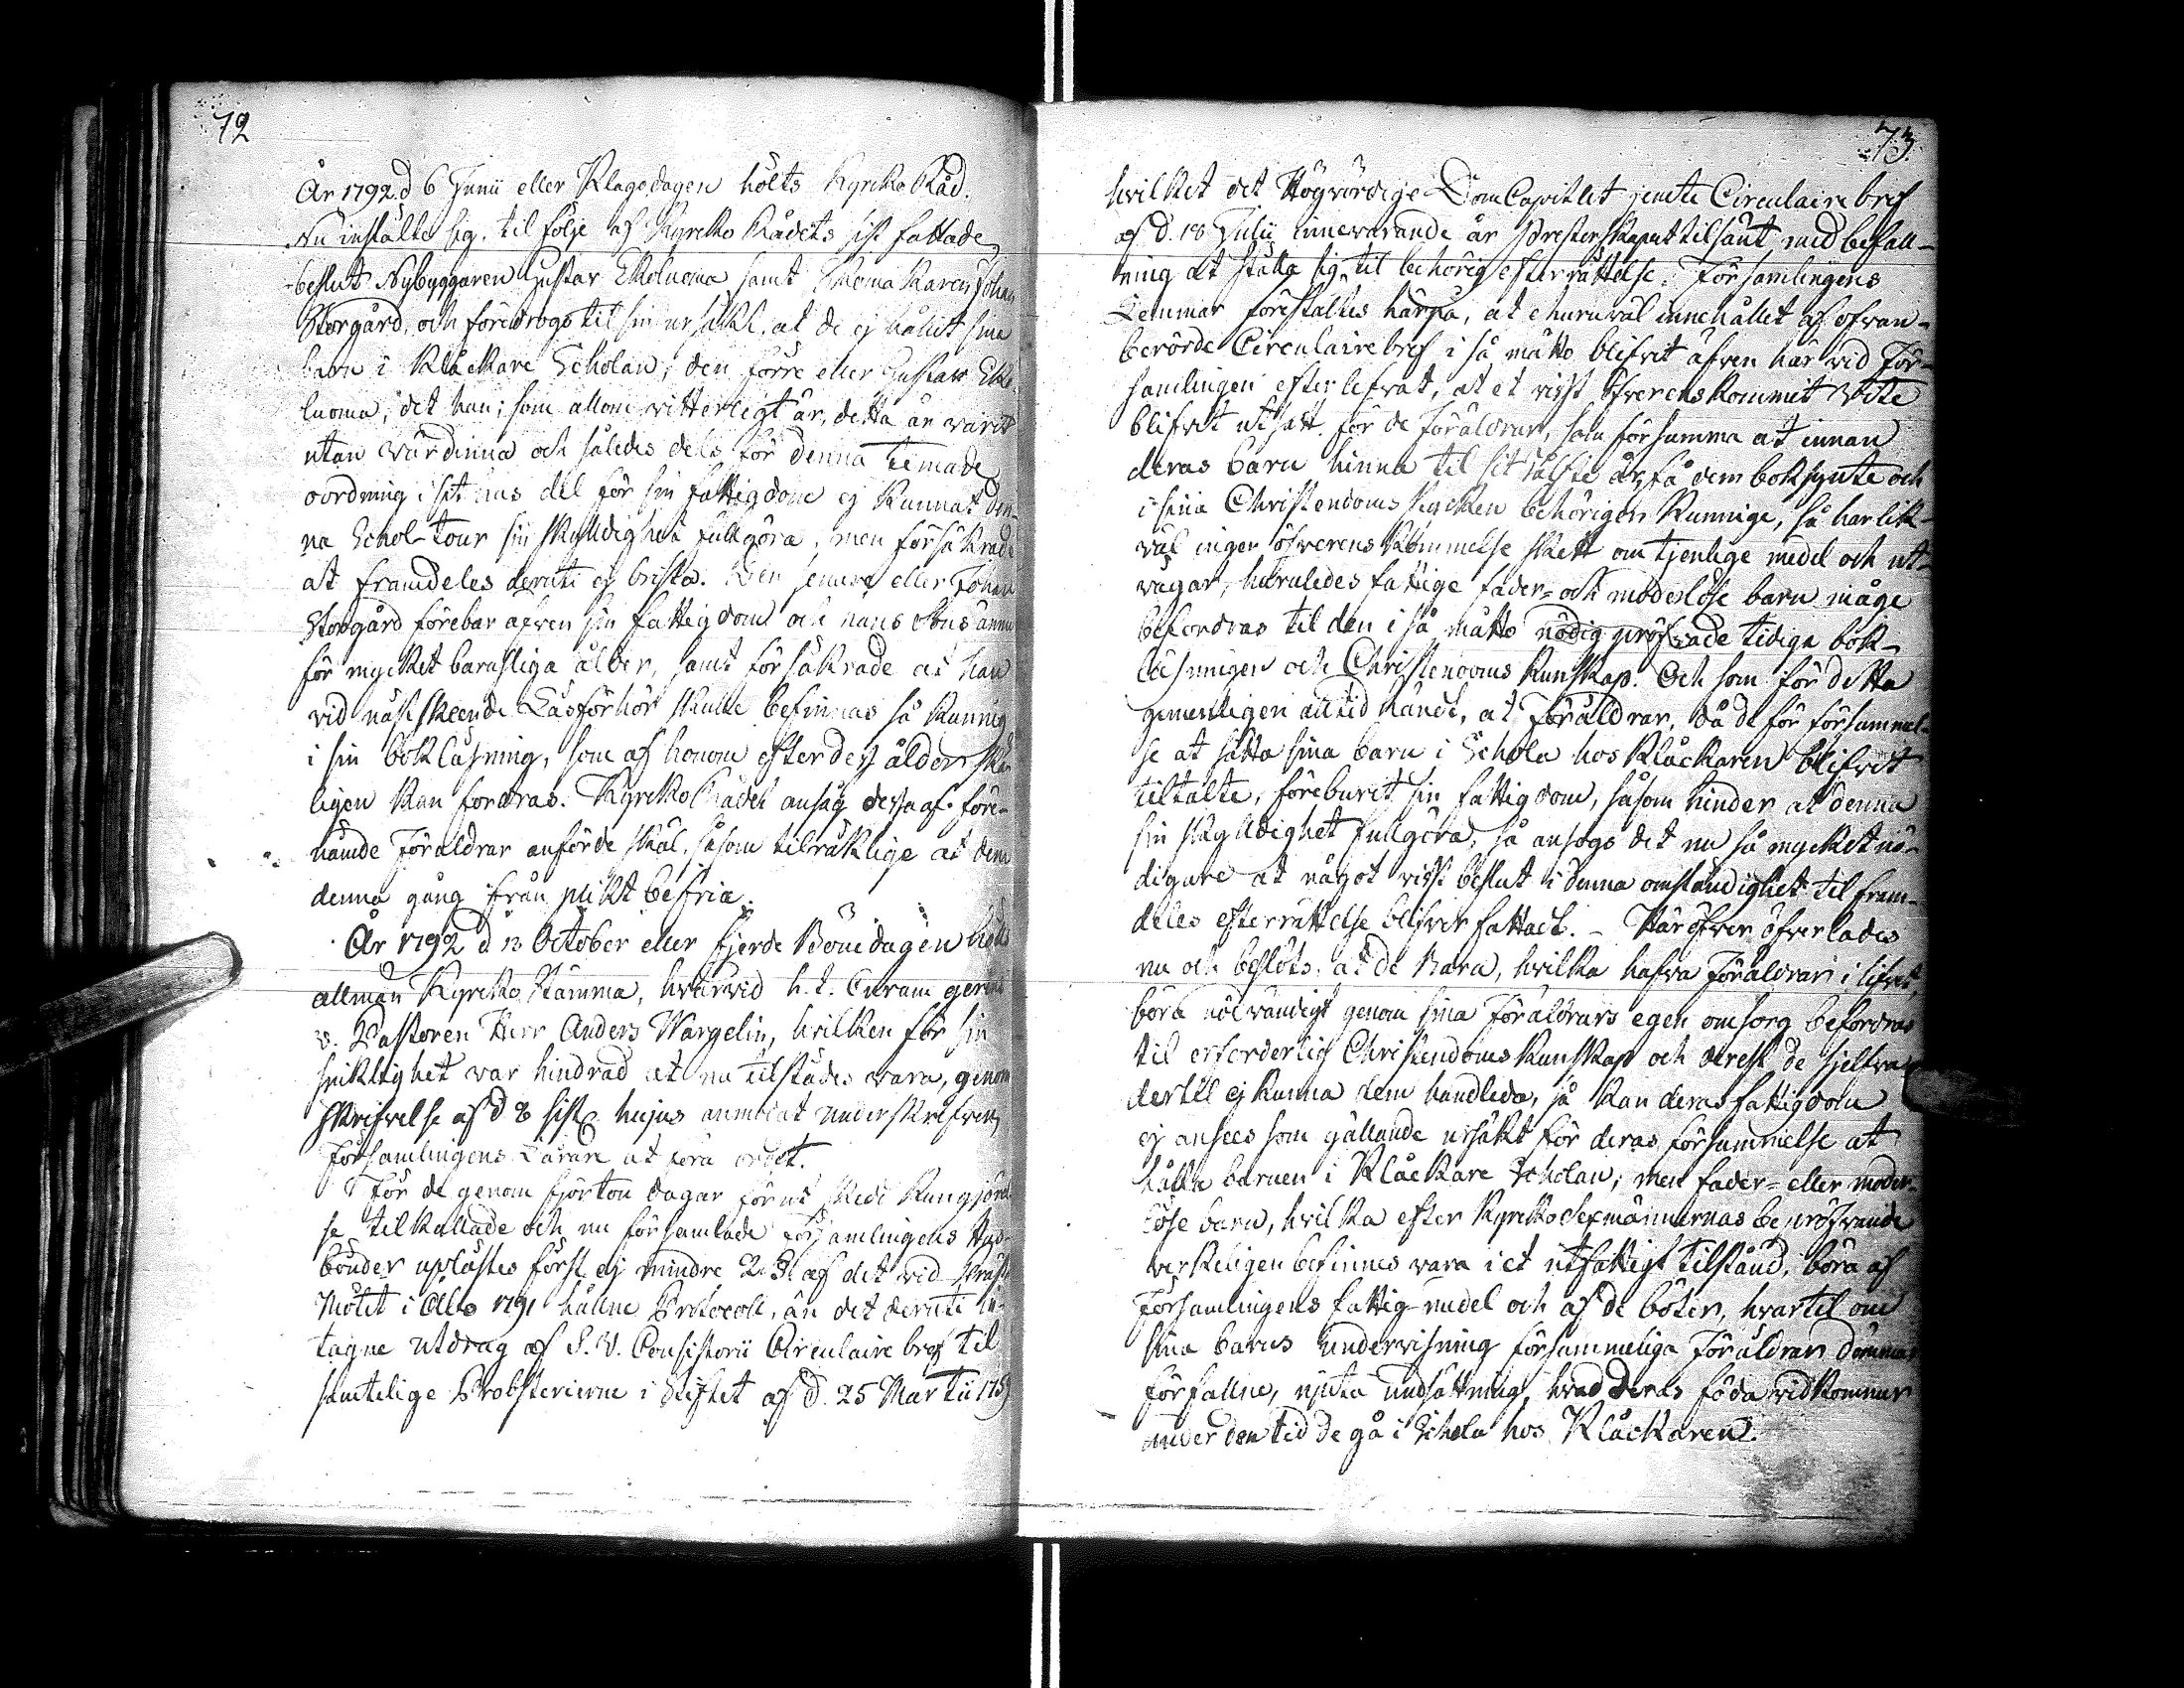 72
År 1792. d 6 Junii eller Klagodagen hölts Kyrcko Råd.
Nu instälte sig, til följe af Kyrcko Rådets sist fattade
beslut Nybyggaren Gustav Ekoluoma samt Skomakaren Johan
Storgård, och föredrogo til sin ursäkt, at de ej hållit sina
barn i Klåckare Scholan, den förre eller Gustav Eko-
luoma, det han, som allom witterligt är, detta år varit
utan värdinna och således dels för denna timade
oordning i sit hus del för sin fattigdom ej kunnat den-
na Schol-tour sin skyldighet fullgöra, men försäkrade
at framdeles deruti ej brista. Den senare eller Johan
Storgård förebar äfven sin fattigdom och hans Sons ännu
för mycket barnsliga ålder, samt försäkrade at han
vid näst skeende Läsförhör skulle befinnas så kunnig
i sin bokläsning, som af honom efter dess ålder skä-
ligen kan fordras. Kyrcko Rådet ansåg dessa af före-
nämde Föräldrar anförde skäl, såsom tilräcklige at dem
denna gång ifrån plikt befria.
År 1792 d 13 October eller fjerde Bönedagen hölts
allmän Kyrcko Stämma, hvarvid h. t. Curam gerens
v. Pastoren Herr Anders Wargelin, hvilken för sin
siuklighet war hindrad at nu tilstädes vara, genom
skrifvelse af d 8 hujus anmodat underskrefven
Församlingens Lärare at föra ordet.
För de genom fjorton dagar förut skedd kungjörel-
se tilkallade och nu församlade Församlingens Hus-
bönder uplästes först ej mindre 2 § af det vid Präst-
Mötet i Åbo 1791 hållne Protocoll, än det deruti in-
tagne utdrag af S. V. Consistorii Circulaire bref til
samtelige Probsterierne i Stiftet af d. 25 Martii
73.
hvilket det Högvördige DomCapitlet jemte Circulaire bref
af d. 18 Julii innevarande år Presterskapet tilsänt med befall-
ning at ställa sig til behörig efterrättelse. Församlingens
Lemmar föreställes härpå, at ehuruväl innehållet af ofvan-
berörde Circulaire bref i så måtto blifvit äfven här vid För-
samlingen efterlefvat, at et visst öfverenskommit Vite
blifvit utsatt för de Föräldrar, som försumma at innan
deras barn hinna til sit år, få dem boksynte och
i sina Christendoms stycken behörigen kunnige, så har lik-
väl ingen öfverenskommelse skett om tjenlige medel och ut-
vägar, huruledes fattige fader- och moderlöse barn måge
befordras til den i så måtto nödig pröfvade tidiga bok-
läsningen och Christendoms kunskap. Och som för detta
gemenligen altid händt, at Föräldrar, då de för försummel-
se at sätta sina barn i Schola hos Klåckaren blifvit
tiltalte, föreburit sin fattigdom, såsom hinder at denna
sin skyldighet fullgöra, så ansågs det nu så mycket nö-
digare at något visst beslut i denna omständighet til fram-
deles efterrättelse blifver fattadt. - Häröfver öfverlades
nu och beslöts: at de Barn, hvilka hafva Föräldrar i lifvet,
böra nödvändigt genom sina Föräldrars egen omsorg befordras
til erforderlig Christendoms kunskap och derest de sjelfva
dertil ej kunna dem handleda, så kan deras fattigdom
ej ansees som gällande ursäkt för deras försummelse at
hålla barnen i Klåckare Scholan; men fader- eller moder-
löse barn, hvilka efter Kyrcko Sexmännernas bepröfvande
verkeligen befinnes vara i et utfattigt tilstånd, böra af
Församlingens fattig-medel och af de böter, hvartil om
sina barns undervisning försummeliga Föräldrar dömmas
förfallne, njuta undsättning, hvad deras föda vidkommer
under den tid de gå i Schola hos Klåckaren.